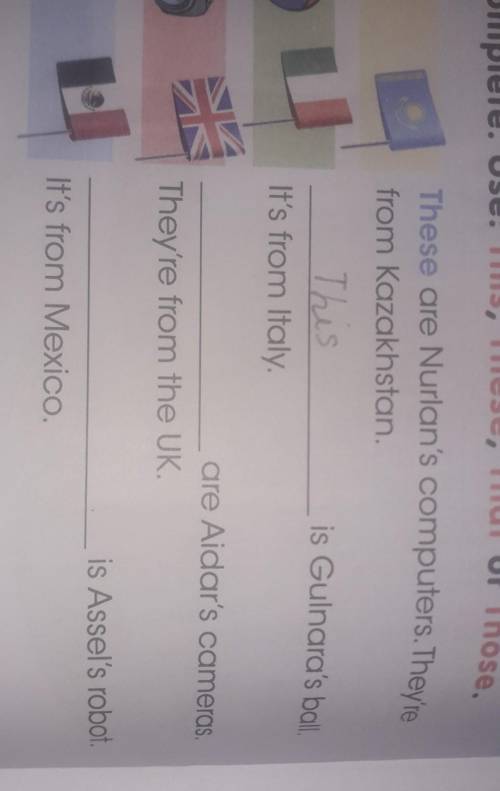 omplete. Use: This, These, That or Those.
These are Nurlan's computers. They're
from Kazakhstan.
This is Gulnara's ball.
It's from Italy.
are Aidar's cameras.
They're from the UK.
is Assel's robot.
It's from Mexico.